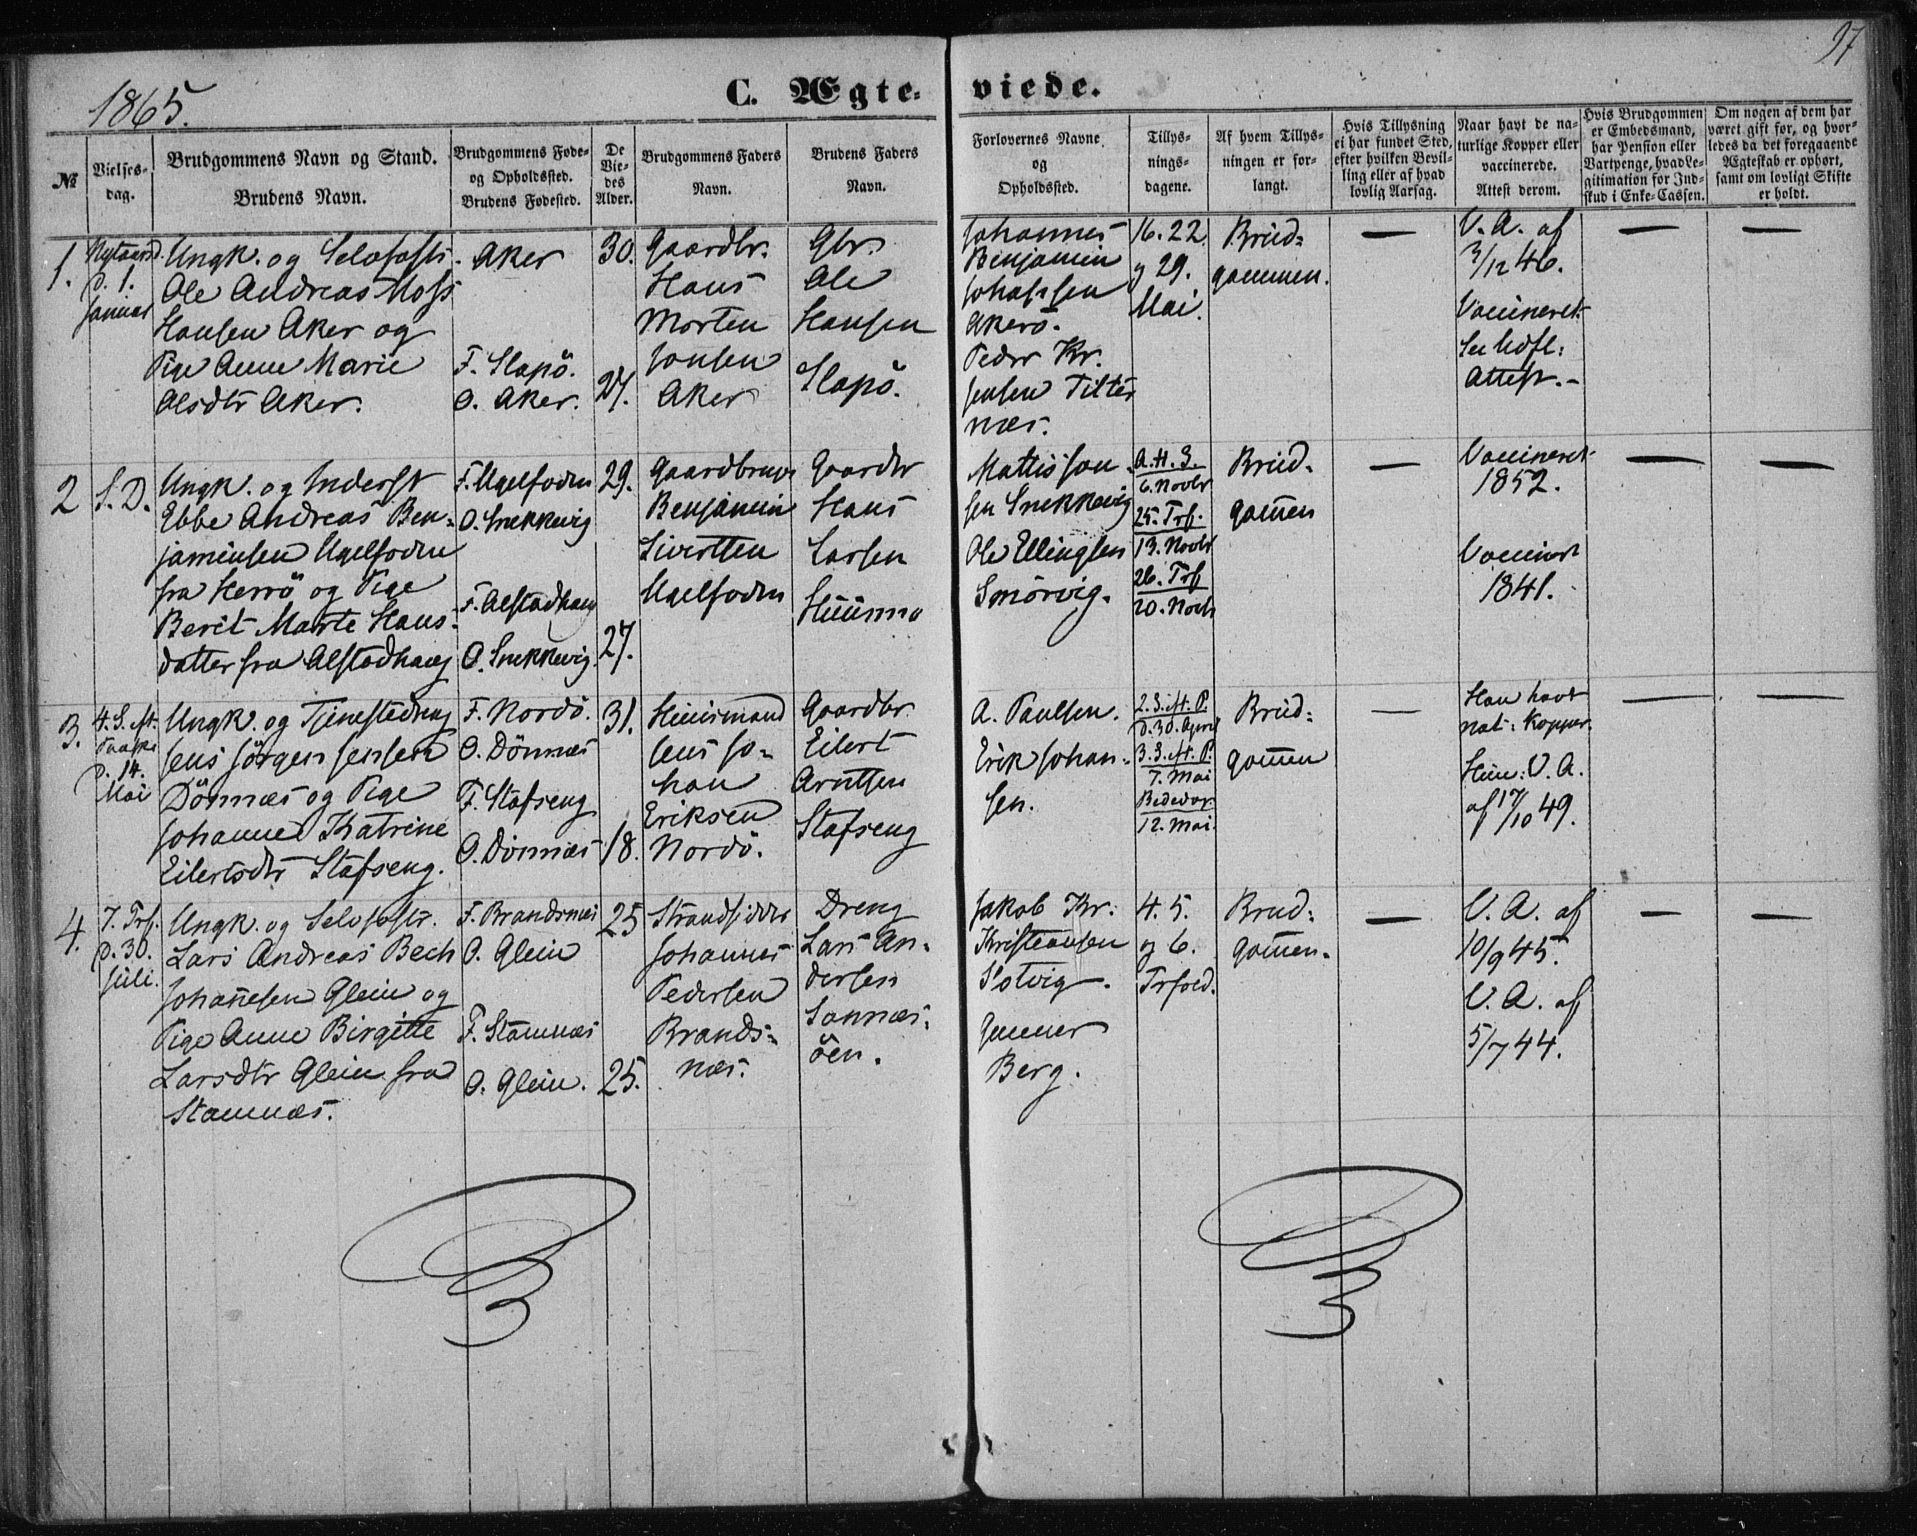 97
1865.
C. Ægte-
viede.
№
Vielses-
dag.
Brudgommens Navn og Stand.
Brudens Navn.
Brudgommens Føde-
og Opholdssted.
Brudens Fødested.
De
Vie-
des
Alder.
Brudgommens Faders
Navn.
Brudens Faders
Navn.
Forlovernes Navne
og
Opholdssted.
Tillys-
nings-
dagene.
Af hvem Tillys-
ningen er for-
langt.
Hvis Tillysning
ei har fundet Sted,
efter hvilken Bevil-
ling eller af hvad
lovlig Aarsag.
Naar havt de na-
turlige Kopper eller
vaccinerede.
Attest derom.
Hvis Brudgommen
er Embedsmand,
har Pension eller
Vartpenge, hvad Le-
gitimation for Ind-
skud i Enke-Cassen.
Om nogen af dem har
været gift før, og hvor-
ledes da det foregaaende
Ægteskab er ophørt,
samt om lovligt Skifte
er holdt.
1.
Nytaarsd.
d. 1.
Januar
Ungk. og Selvfostr.
Ole Andreas Moss
Hansen Aker og
Pige Anne Marie
Olsdtr Aker.
Aker
F. Slapö.
O. Aker.
30.
27.
Gaardbr.
Hans
Morten
Jonsen
Aker
Gbr.
Ole
Hansen
Slapö.
Johannes
Benjamin
Johansen
Akerö.
Peder Kr.
Jensen Titter
næs.
16. 22
g 29.
Mai.
Brud-
gommen.
—
V. A. af
3/12 46.
Vaccineret
Attest. -
—
—
2
S. D.
Ungk. og Inderst
Ebbe Andreas Ben-
jaminsen Ugelfoden
fra Herrö og Pige
Berit Marte Hans-
datter fra Alstadhaug
F. Ugelfoden
O. Snekkevig
F. Alstadhaug
O. Snekkevig.
29.
27.
Gaardbruger
Benjamin
Sivertsen
Ugelfoden
Gaardbr
Hans
Larsen
Huusmo
Mattis Jon
sen Snekkevig
Ole Ellingsen
Smörvig.
A. H. S.
6. Novbr
25. Trf.
13. Novbr
26. Trf
20. Novb
Brud-
gommen
—
Vaccineret
1852.
Vaccineret
1841.
—
—
3.
4. S. eft.
Paaske
d. 14.
Mai
Ungk. og Tjenestedreng
Jens Jörgen Jensen
Dönnæs og Pige
Johanne Katrine
Eilertsdtr Stafseng.
F. Nordö.
O. Dönnæs
F. Stafseng
O. Dönnæs
31.
18.
Huusmand
Jens Jo-
han
Eriksen
Nordö.
Gaardbr
Eilert
Arntsen
Stafseng
A. Paulsen.
Erik Johan-
sen.
2. S. eft. P.
d. 30. April
3. S. eft. P.
7. Mai
Bededag.
12. Mai.
Brud-
gommen
—
Han havt
nat: Kopper.
Hun: V. A.
af 17/10 49.
—
—
4.
7. Trf.
d. 30.
Juli.
Ungk. og Selvfostr.
Lars Andreas Bech
Johannesen Glein og
Pige Anne Birgitte
Larsdtr Glein fra
Stamnæs.
F. Brandsnæs
O. Glein
F. Stamnæs
O. Glein.
25
25.
Strandsidder
Johannes
Pedersen
Brands-
næs.
Dreng
Lars An-
dersen
Sannæs-
öen.
Jakob Kr:
Kristiansen
Slotvig.
Gunner
Berg.
4. 5.
og 6.
Trfold.
Brud-
gommen.
—
V. A. af
10/9 45.
V. A. af
5/7 44.
—
—